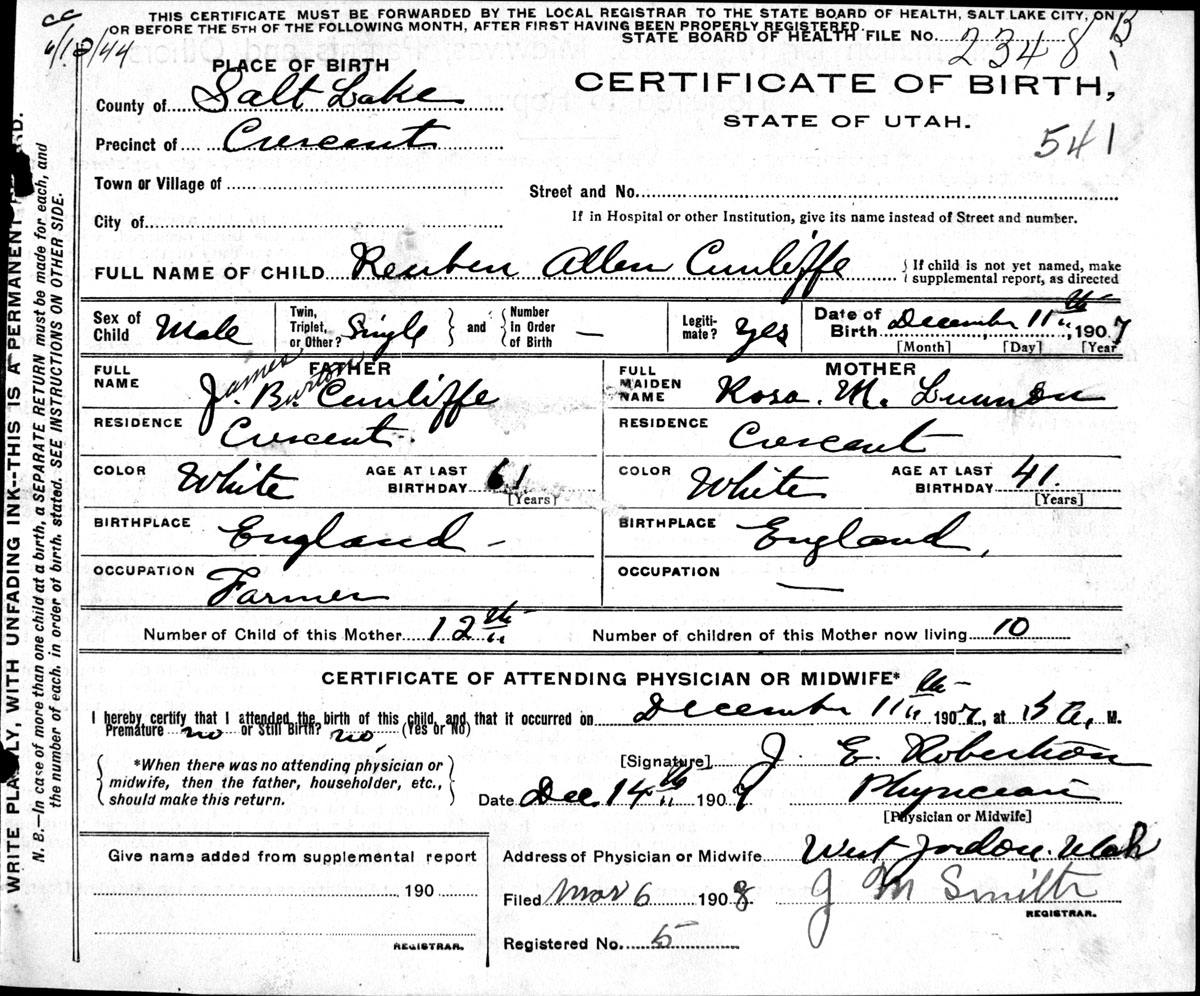 THIS CERTIFICATE MUST BE FORWARDED BY THE LOCAL REGISTRAR TO THE STATE BOARD OF HEALTH, SALT LAKE CITY, ON
OR BEFORE THE 5TH OF THE FOLLOWING MONTH, AFTER FIRST HAVING BEEN PROPERLY REGISTERED.
STATE BOARD OF HEALTH FILE No. 2348 B
PLACE OF BIRTH
CERTIFICATE OF BIRTH,
STATE OF UTAH.
541
County of Salt Lake
Precinct of Crescent
Town or Village of
Street and No.
City of
If in Hospital or other Institution, give its name instead of Street and number.
FULL NAME OF CHILD Reuben Allen Cunliffe
{ If child is not yet named, make
supplemental report, as directed
Sex of Child Male
Twin, Triplet, or Other? Single } and { Number in Order of Birth —
Legitimate? yes
Date of Birth December 11th, 1907
[Month] [Day] [Year
FATHER
FULL NAME J. B. Cunliffe
James Burton
RESIDENCE Crescent.
COLOR White AGE AT LAST BIRTHDAY 61 [Years]
BIRTHPLACE England -
OCCUPATION Farmer
MOTHER
FULL MAIDEN NAME Rosa. M.
RESIDENCE Crescent
COLOR White AGE AT LAST BIRTHDAY 41. [Years]
BIRTHPLACE England,
OCCUPATION —
Number of Child of this Mother 12th
Number of children of this Mother now living 10
CERTIFICATE OF ATTENDING PHYSICIAN OR MIDWIFE*
I hereby certify that I attended the birth of this child, and that it occurred on December 11th 1907, at A, M.
Premature no or Still Birth? no, (Yes or No)
{ *When there was no attending physician or
midwife, then the father, householder, etc.,
should make this return. }
[Signature] J. E. Robertson
Date Dec 14th 1907 Physician
[Physician or Midwife]
Address of Physician or Midwife West Jordon. Utah
Filed Mar 6 1908. J M Smith
REGISTRAR.
Registered No. 5
Give name added from supplemental report
190
REGISTRAR.
WRITE PLAINLY, WITH UNFADING INK--THIS IS A PERMANENT
N. B.—In case of more than one child at a birth, a SEPARATE RETURN must be made for each, and
the number of each, in order of birth, stated. SEE INSTRUCTIONS ON OTHER SIDE.